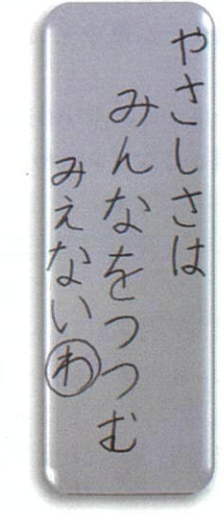 やさしさは
みんなをつつむ
みえないわ